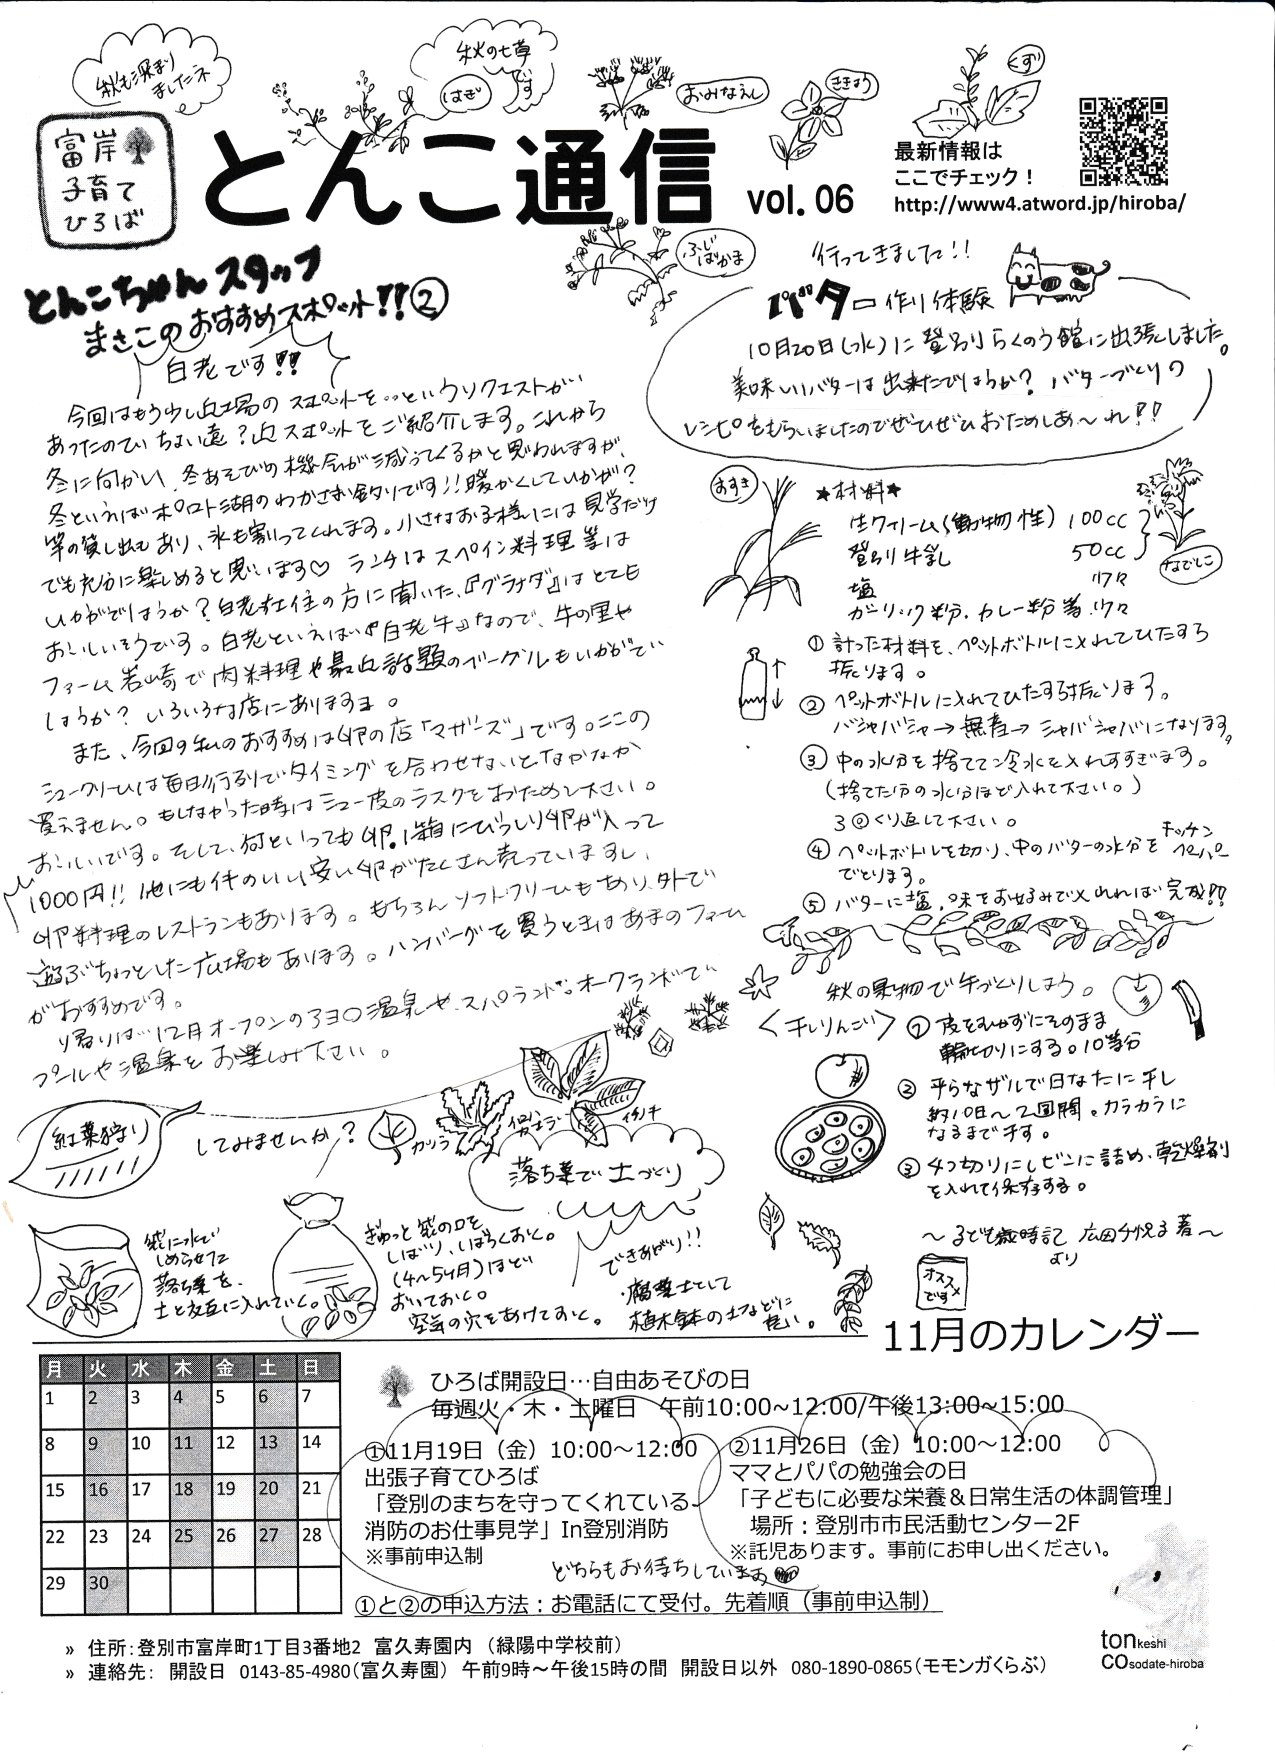 秋も深まり
ましたネ
秋の七草
です
はぎ
おみなえし
ききょう
くず
富岸
子育て
ひろば
とんこ通信 vol. 06
最新情報は
ここでチェック！
http://www4.atword.jp/hiroba/
ふじばかま
とんこちゃんスタッフ
まさこのおすすめスポット!!②
白老です!!
今回はもう少し近場のスポットを‥というリクエストが
あったのでちょい遠？近スポットをご紹介します。これから
冬に向かい、冬あそびの機会が減ってくるかと思われますが、
冬といえばポロト湖のわかさぎ釣りです!!暖かくしていかが？
竿の貸し出しもあり、氷も割ってくれます。小さなお子様には見学だけ
でも充分に楽しめると思います♡ ランチはスペイン料理等は
いかがでしょうか？白老在住の方に聞いた、『グラナダ』はとても
おいしいそうです。白老といえば『白老牛』なので、牛の里や
ファーム岩崎で肉料理や最近話題のベーグルもいかがで
しょうか？いろいろな店にありますョ。
また、今回の私のおすすめは卵の店「マザーズ」です。ここの
シュークリームは毎日行列でタイミングを合わせないとなかなか
買えません。もしなかった時はシュー皮のラスクをおためし下さい。
おいしいです。そして、何といっても卵。1箱にびっしり卵が入って
1000円!!他にも件のいい安い卵がたくさん売っていますし、
卵料理のレストランもあります。もちろんソフトクリームもあり、外で
遊ぶちょっとした広場もあります。ハンバーグを買うときはあまのファーム
がおすすめです。
り帰りは…12月オープンのヨコ温泉や、スパランド・オークランドで
プールや温泉をお楽しみ下さい。
行ってきました!!
バター作り体験
10月20日(水)に登別らくのう館に出張しました。
美味しいバターは出来たでしょうか？バターづくりの
レシピをもらいましたのでぜひぜひおためしあ～れ!!
すすき
なでしこ
★材料★
生クリーム(動物性) 100cc
登別牛乳 50cc
塩 少々
ガーリック粉、カレー粉等 少々
① 計った材料を、ペットボトルに入れてひたすら
振ります。
② ペットボトルに入れてひたすら振ります。
バシャバシャ→無音→シャバシャバになります。
③ 中の水分を捨てて冷水を入れすすぎます。
(捨てた分の水分ほど入れて下さい。)
3回くり返して下さい。
④ ペットボトルを切り、中のバターの水分をキッチンペーパー
でとります。
⑤ バターに塩、味をお好みで入れれば完成!!
秋の果物で手づくりしよう。
〈干しりんご〉
① 皮をむかずにそのまま
輪切りにする。10等分
② 平らなザルで日なたに干し
約10日～2週間。カラカラに
なるまで干す。
③ 4つ切りにしビンに詰め、乾燥剤
を入れて保存する。
～子ども歳時記 広田千悦子著～
より
オススメです
紅葉狩り
してみませんか？
カツラ
イタヤカエデ
イチョウ
落ち葉で土づくり
袋に水で
しめらせた
落ち葉を、
土と交互に入れていく。
ぎゅっと袋の口を
しばり、しばらくおく。
(4～5ヶ月)ほど
おいておく。
空気の穴をあけておく。
できあがり!!
腐葉土として
植木鉢の土などに
使い。
11月のカレンダー
月 火 水 木 金 土 日
1 2 3 4 5 6 7
8 9 10 11 12 13 14
15 16 17 18 19 20 21
22 23 24 25 26 27 28
29 30
ひろば開設日…自由あそびの日
毎週火・木・土曜日 午前10:00~12:00/午後13:00~15:00
①11月19日（金）10:00～12:00
出張子育てひろば
「登別のまちを守ってくれている
消防のお仕事見学」In登別消防
※事前申込制
②11月26日（金）10:00～12:00
ママとパパの勉強会の日
「子どもに必要な栄養＆日常生活の体調管理」
場所：登別市市民活動センター2F
※託児あります。事前にお申し出ください。
どちらもお待ちしています
①と②の申込方法：お電話にて受付。先着順（事前申込制）
» 住所：登別市富岸町1丁目3番地2 富久寿園内 （緑陽中学校前）
» 連絡先： 開設日 0143-85-4980（富久寿園） 午前9時～午後15時の間 開設日以外 080-1890-0865（モモンガくらぶ）
tonkeshi
COsodate-hiroba